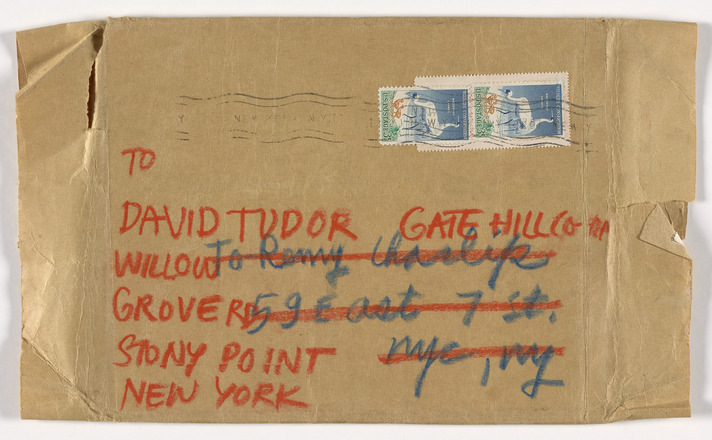 TO
DAVID TUDOR GATE HILL CO-OP
WILLOW
GROVE RD
STONY POINT
NEW YORK
To Remy Charlip
59 East 7 St.
nyc, ny
U.S. POSTAGE
U.S. POSTAGE